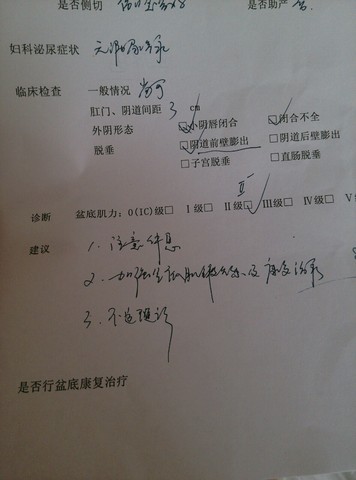 是否侧切
是否助产 否
妇科泌尿症状
临床检查 一般情况 尚可
肛门、阴道间距 3 cm
外阴形态 ☑小阴唇闭合 ☑闭合不全
脱垂 ☑阴道前壁膨出 □阴道后壁膨出
□子宫脱垂 □直肠脱垂
II⁻
诊断 盆底肌力：0(IC)级□ I 级□ II级☑ III级□ IV级□ V
建议 1. 注意休息
2. 加强盆底肌锻炼及康复治疗
3. 不适随诊
是否行盆底康复治疗